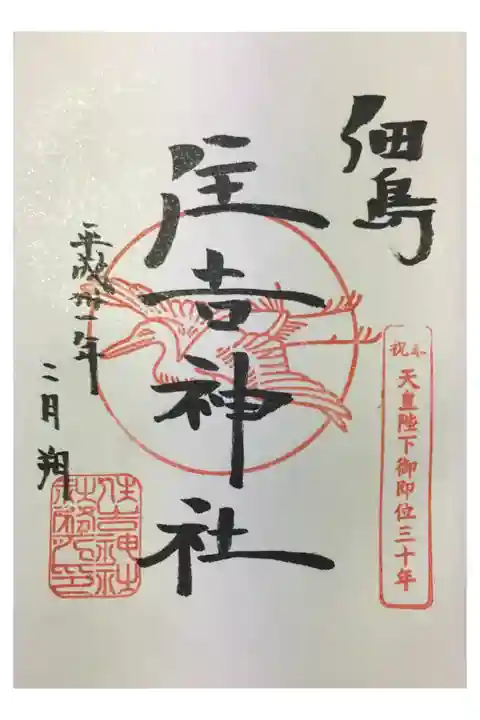 佃島
奉祝 天皇陛下御即位三十年
住吉神社
平成卅一年
二月朔
住吉神社
社務所之印